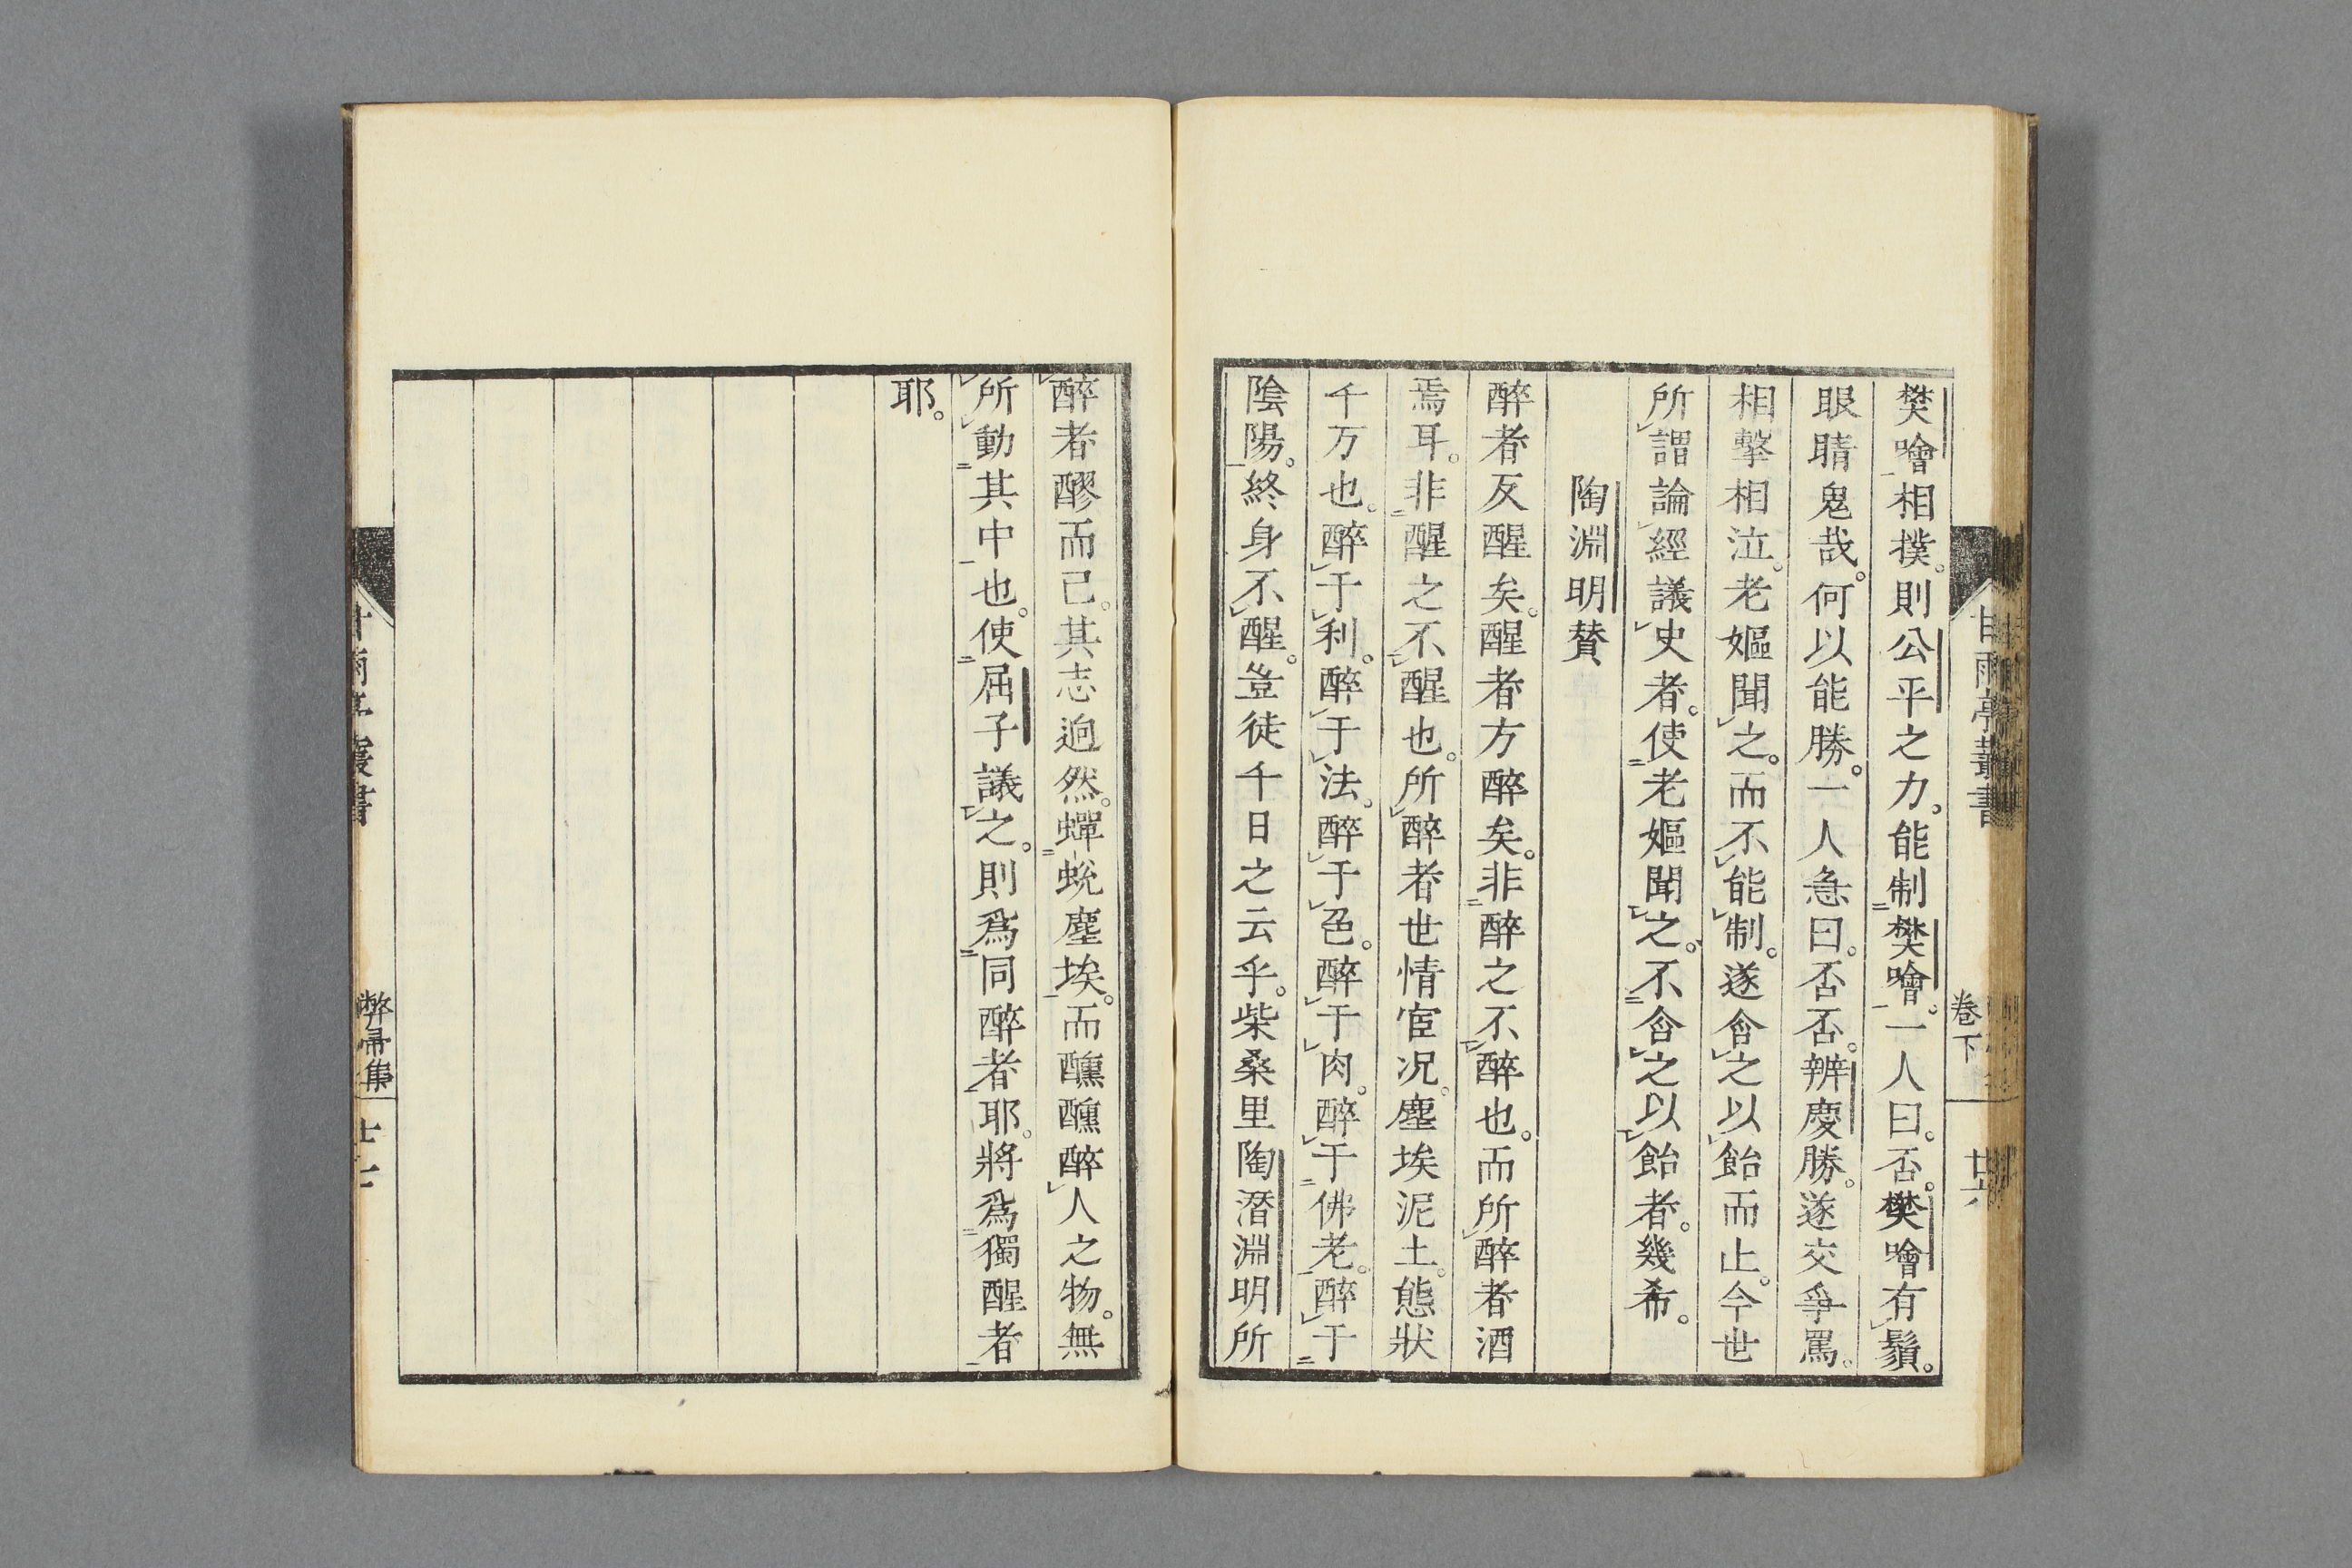 樊噲相撲。則公平之力。能制樊噲。一人曰。否。樊噲有鬚。
眼睛鬼哉。何以能勝。一人急曰。否否。辨慶勝。遂交爭罵。
相擊相泣。老嫗聞之。而不能制。遂含之以飴而止。今世
所謂論經議史者。使老嫗聞之。不含之以飴者。幾希。
陶淵明贊
醉者反醒矣。醒者方醉矣。非醉之不醉也。而所醉者酒
焉耳。非醒之不醒也。所醉者世情宦況。塵埃泥土。態狀
千万也。醉于利。醉于法。醉于色。醉于肉。醉于佛老。醉于
陰陽。終身不醒。豈徒千日之云乎。柴桑里陶潛淵明所
甘雨亭叢書
卷下
廿六
醉者醪而已。其志逈然。蟬蛻塵埃。而醺醺醉人之物。無
所動其中也。使屈子議之。則爲同醉者耶。將爲獨醒者
耶。
弊帚集